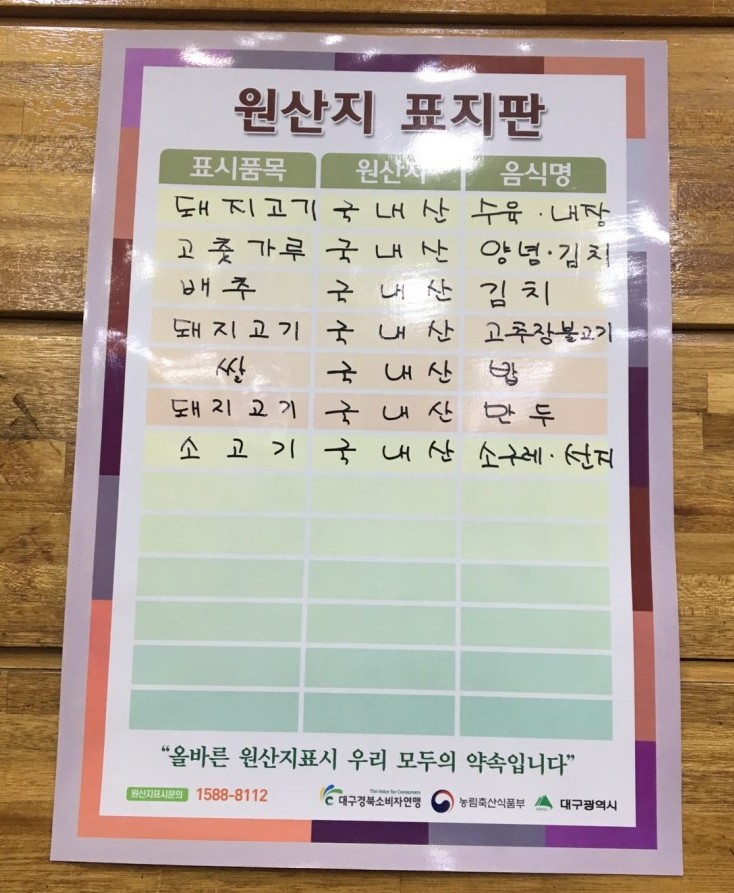 원산지 표지판
표시품목 원산지 음식명
돼지고기 국내산 수육·내장
고춧가루 국내산 양념·김치
배추 국내산 김치
돼지고기 국내산 고추장불고기
쌀 국내산 밥
돼지고기 국내산 만두
소고기 국내산 소구레·선지
“올바른 원산지표시 우리 모두의 약속입니다”
원산지표시문의 1588-8112
The Voice for Consumers
대구경북소비자연맹 농림축산식품부 대구광역시